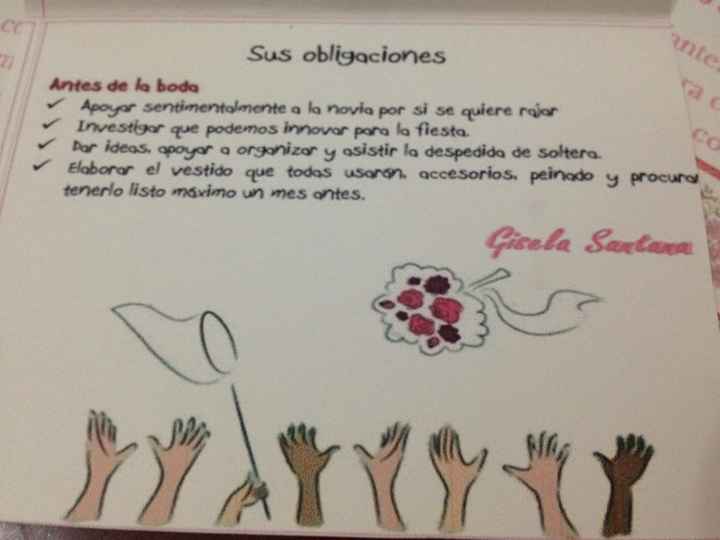 Sus obligaciones
Antes de la boda
✓ Apoyar sentimentalmente a la novia por si se quiere rajar
✓ Investigar que podemos innovar para la fiesta.
✓ Dar ideas, apoyar a organizar y asistir la despedida de soltera.
✓ Elaborar el vestido que todas usarán, accesorios, peinado y procurar
tenerlo listo máximo un mes antes.
Gisela Santana